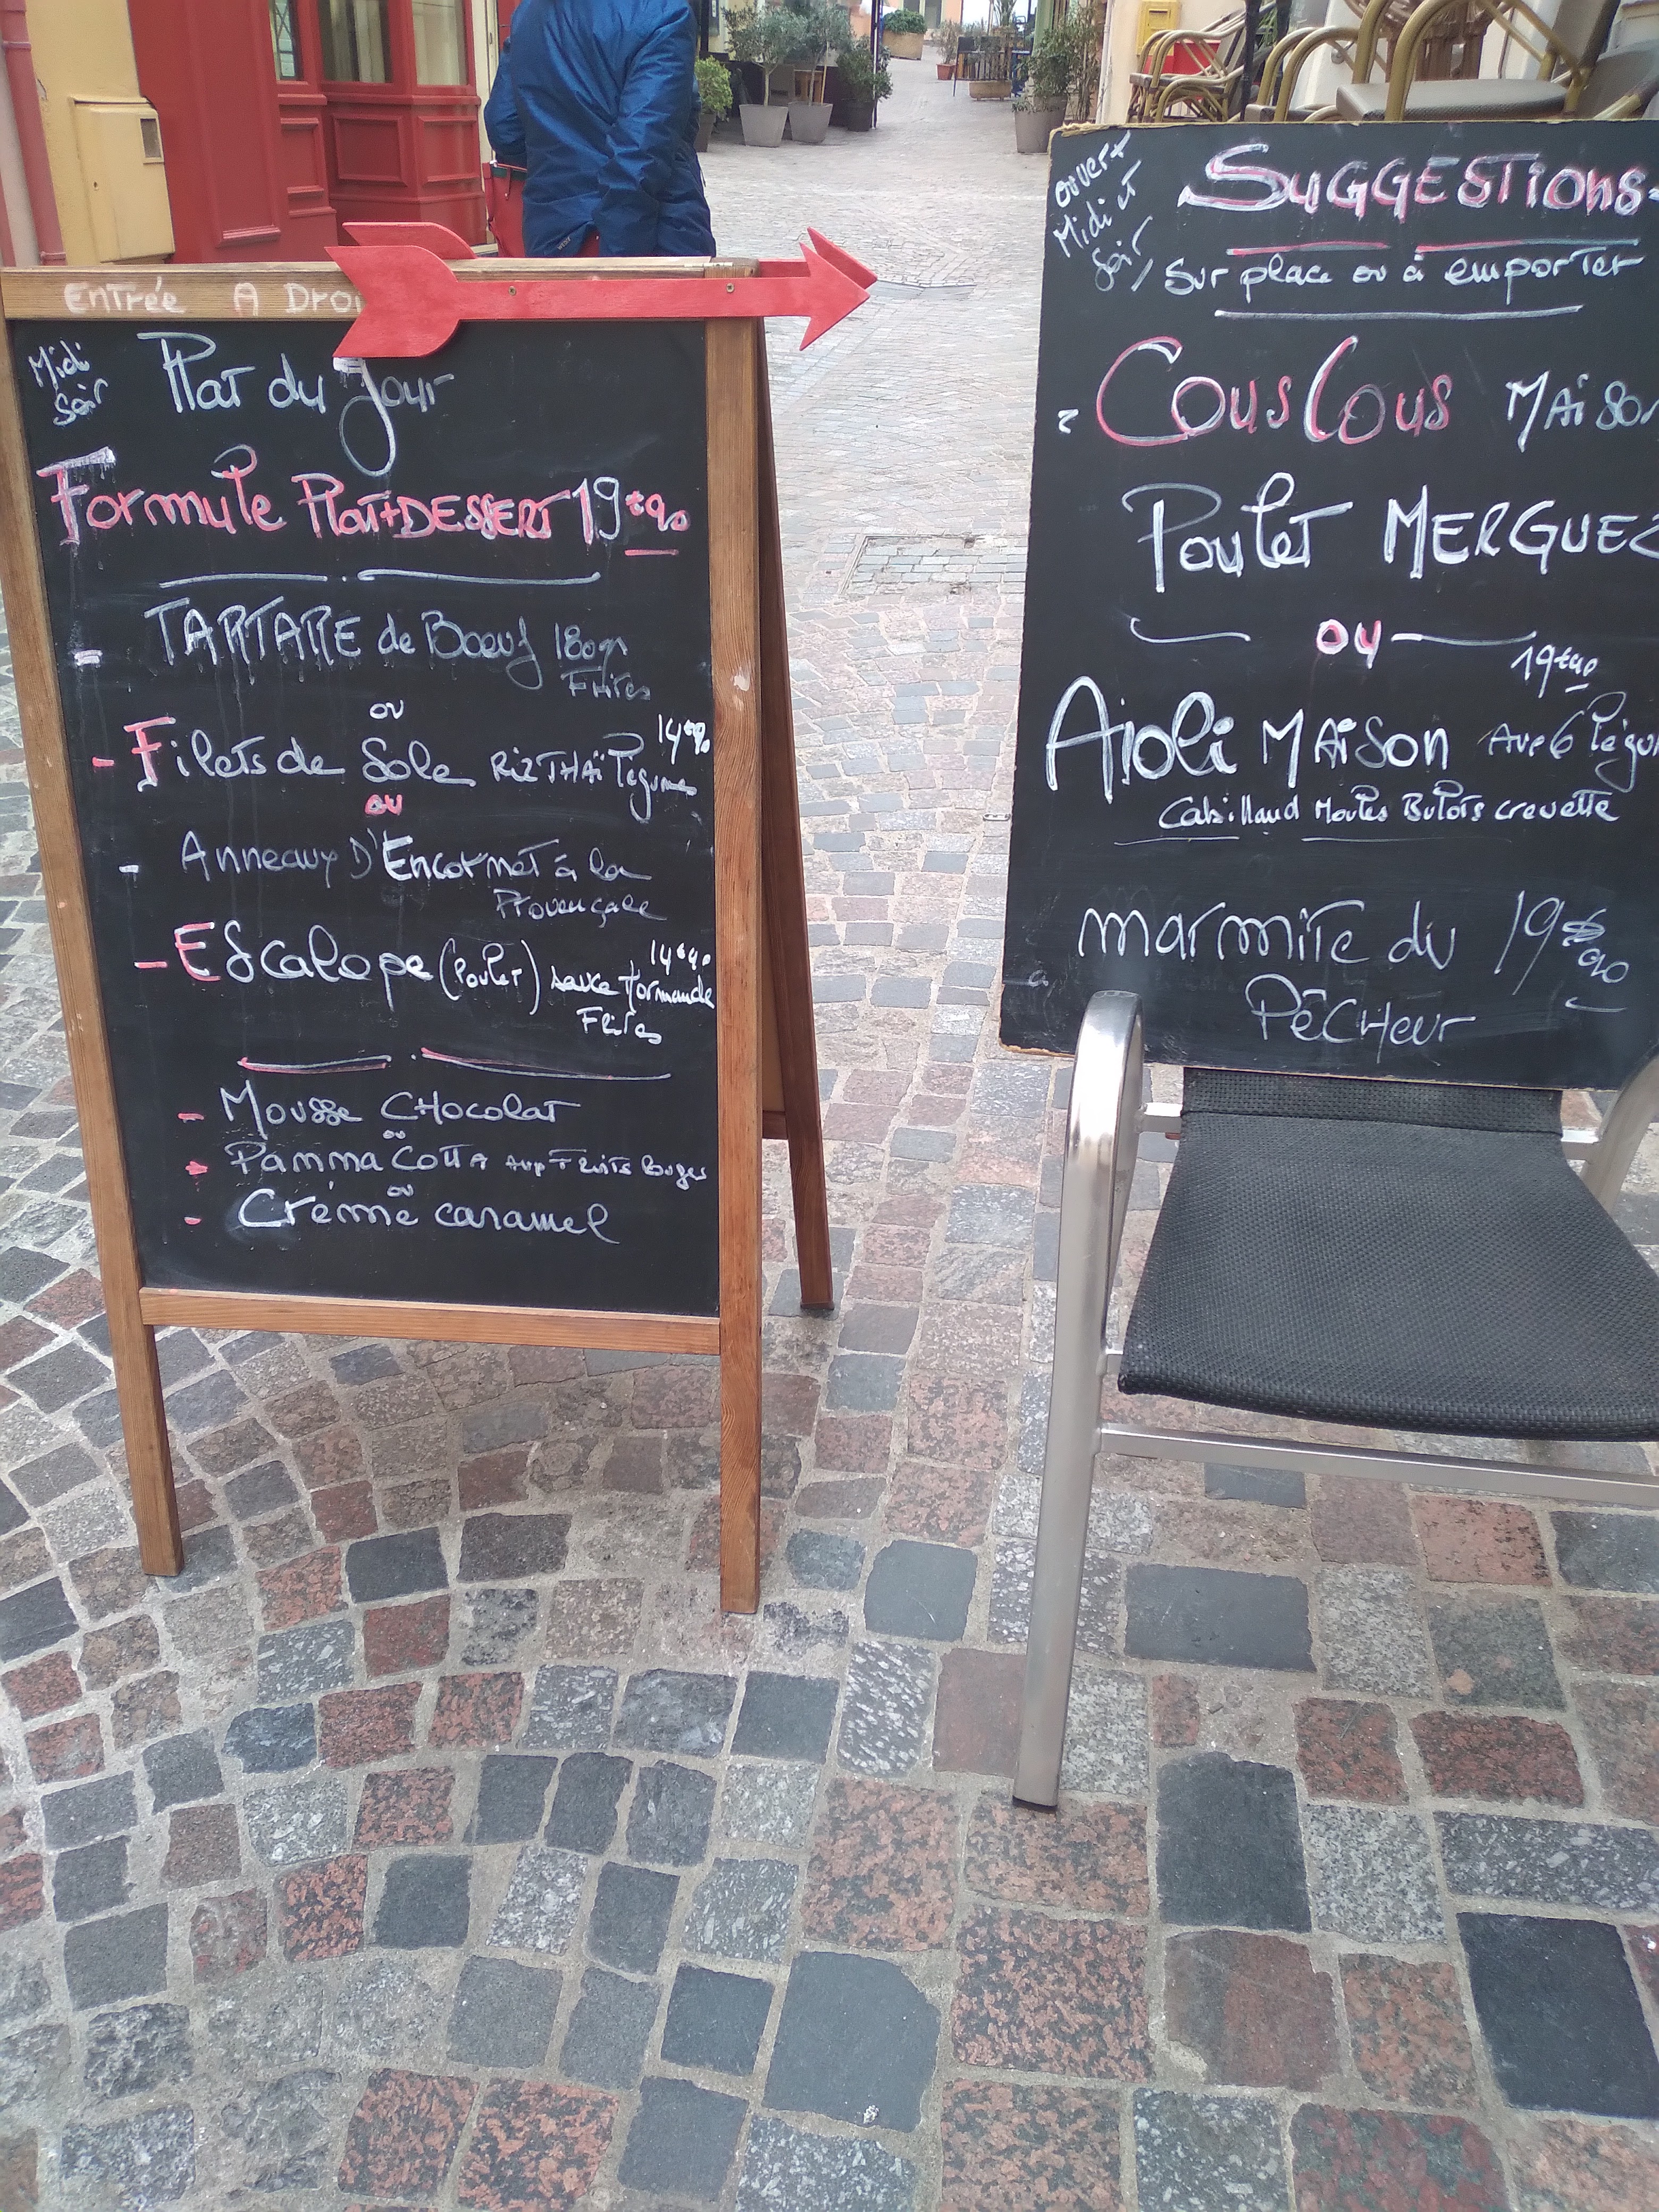 Entrée A Droi
Midi
Soir
Plat du Jour
Formule Plat+DESSERT 19€90
TARTARE de Boeuf 180gr
Frites
ou
14€90
- Filets de Sole RIZ THAÏ légumes
ou
- Anneaux D'Encornet à la
Provençale
14€90
- Escalope (Poulet) sauce Normande
Frites
- Mousse CHocolat
ou
Panna CoTTA avec Fruits Rouges
ou
- Crème caramel
ouvert
Midi et
Soir
SuGGESTIons
Sur place ou à emporter
CousCous MAison
Poulet MERGUEZ
ou
19€90
Aïoli MAison Avec 6 légu
Cabillaud Moules Bulots crevette
marmite du 19€90
PêCHeur